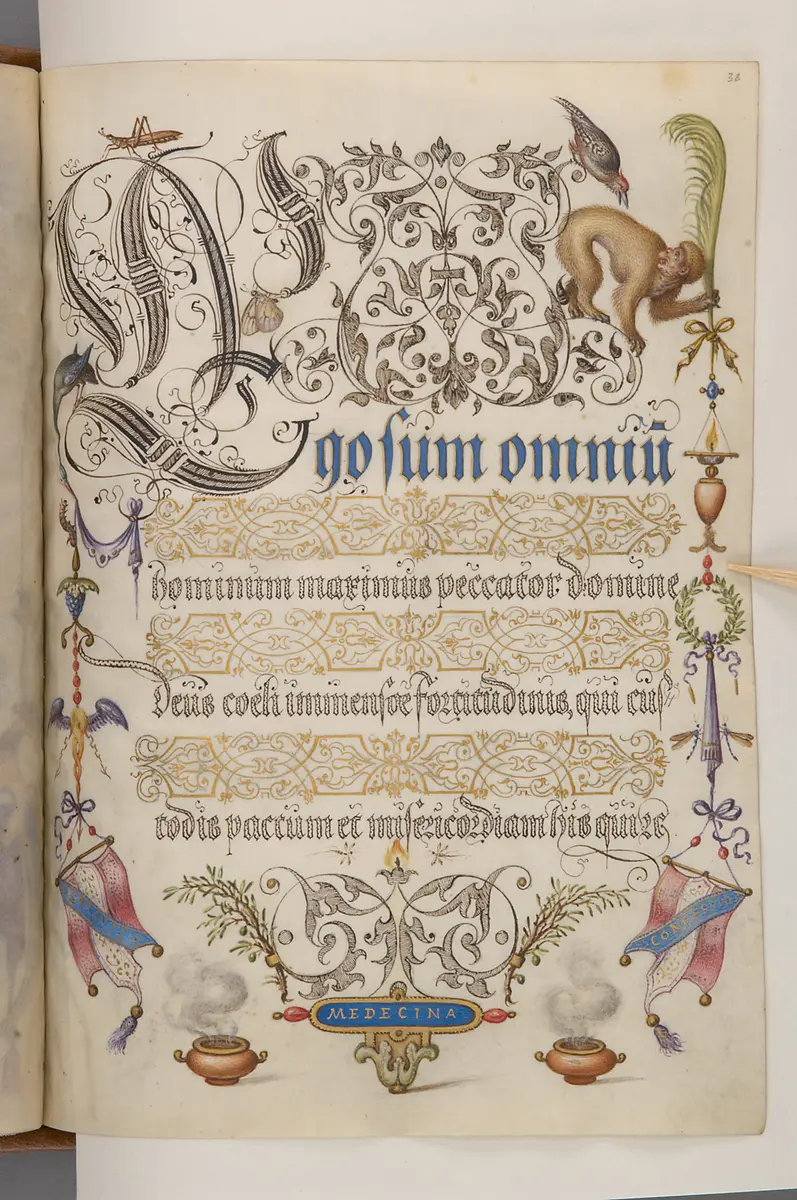 38
Ego sum omniū
hominum maximus peccator domine
Deus coeli immensoe fortitudinis, qui cus
todis pactum et misericordiam his qui re
CONFESSIO
MEDECINA